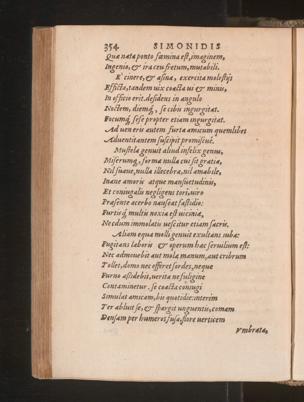 354 SIMONIDIS
Quæ nata ponto fœmina est, imaginem,
Ingenio, & ira ceu fretum, mutabili.
E' cinere, & asina, exercita molestijs
Efficta, tandem uix coacta us & minis,
In officio erit. desidens in angulo
Noctem, diemq́, se cibis ingurgitat.
Focumq́, sese propter etiam ingurgitat.
Ad ueneris autem furta amicum quemlibet
Aduentitantem suscipit promiscuè.
Mustela genuit aliud infelix genus,
Miserumq́, forma nulla cui sit gratia,
Nil suaue, nulla illecebra, nil amabile,
Inane amoris atque mansuetudinis,
Et coniugalis negligens tori, uiro
Præsente acerbo nauseat fastidio:
Furtisq́ multis noxia est uicinia,
Necdum immolatis uescitur etiam sacris.
Aliam equa molli genuit exultans iuba:
Fugitans laboris & operum hæc seruilium est:
Nec admouebit aut molæ manum, aut cribrum
Tollet, domo nec efferet sordes, neque
Furno assidebit, uerita ne fuligine
Contaminetur. se coacta coniugi
Simulat amicam, bis quotidie: interim
Ter abluit se, & spargit unguentis, comam
Densam per humeros fusa, flore uerticem
Vmbrata,